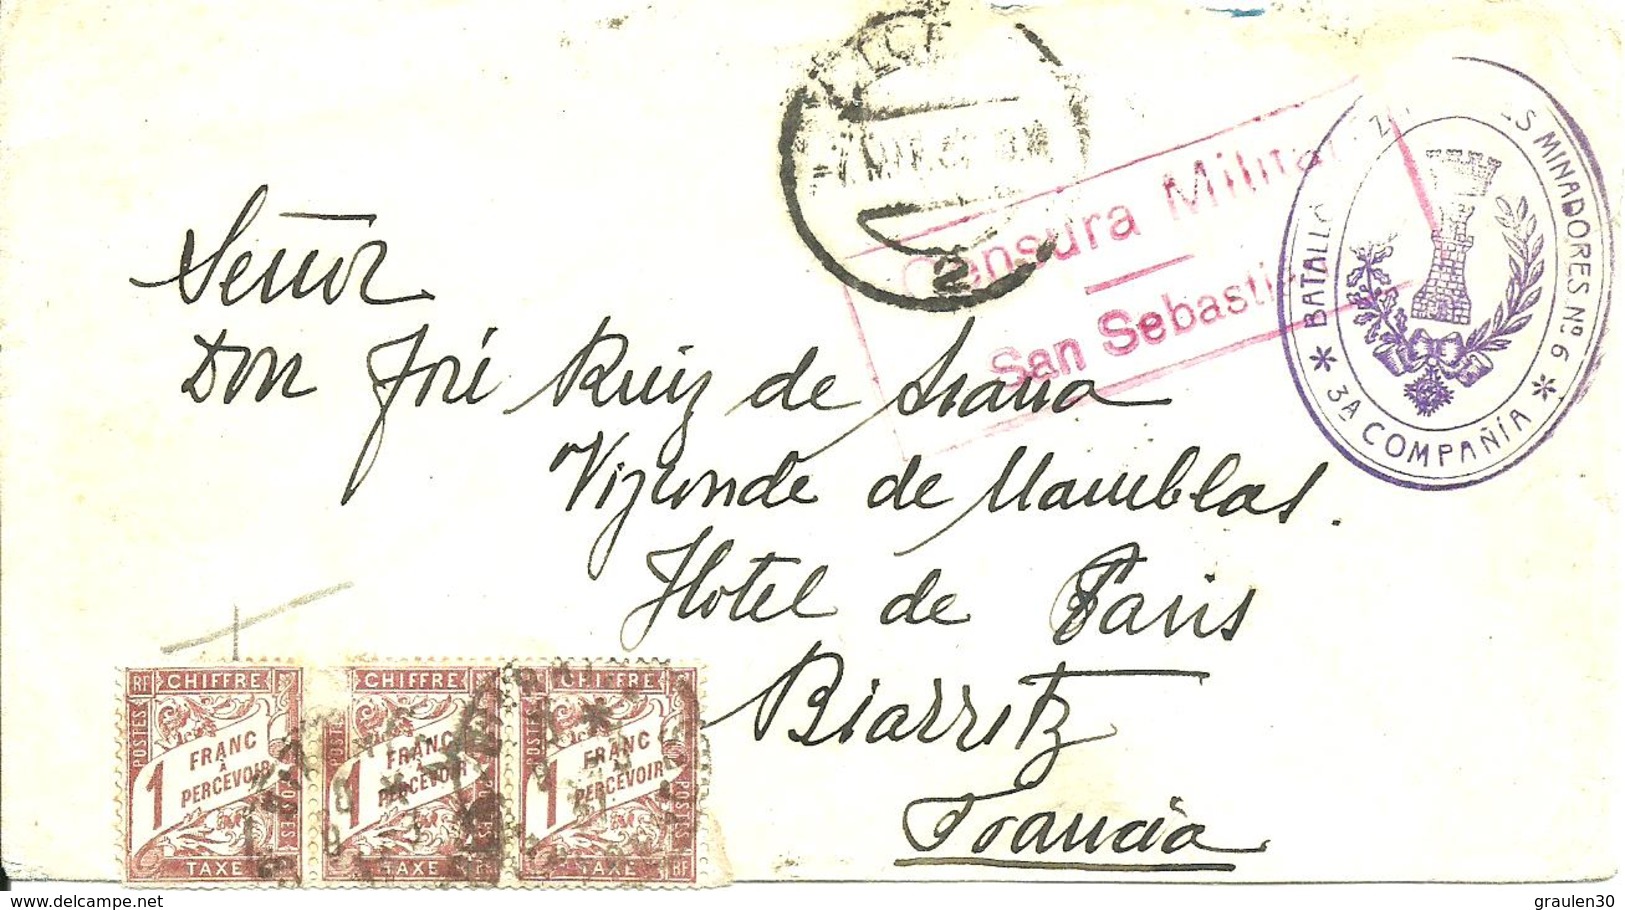 Censura Militar
San Sebastián
BATALLÓN ZAPADORES MINADORES Nº 6
* 3A COMPAÑÍA *
2
Señor
Don José Ruiz de Arana
Vizconde de Mamblas.
Hotel de Paris
Biarritz
Francia
RF CHIFFRE
POSTES
1 FRANC
À
PERCEVOIR
POSTES
TAXE
CHIFFRE
POSTES
1 FRANC
À
PERCEVOIR
POSTES
TAXE
CHIFFRE
POSTES
1 FRANC
À
PERCEVOIR
POSTES
TAXE RF
delcampe.net
graulen30